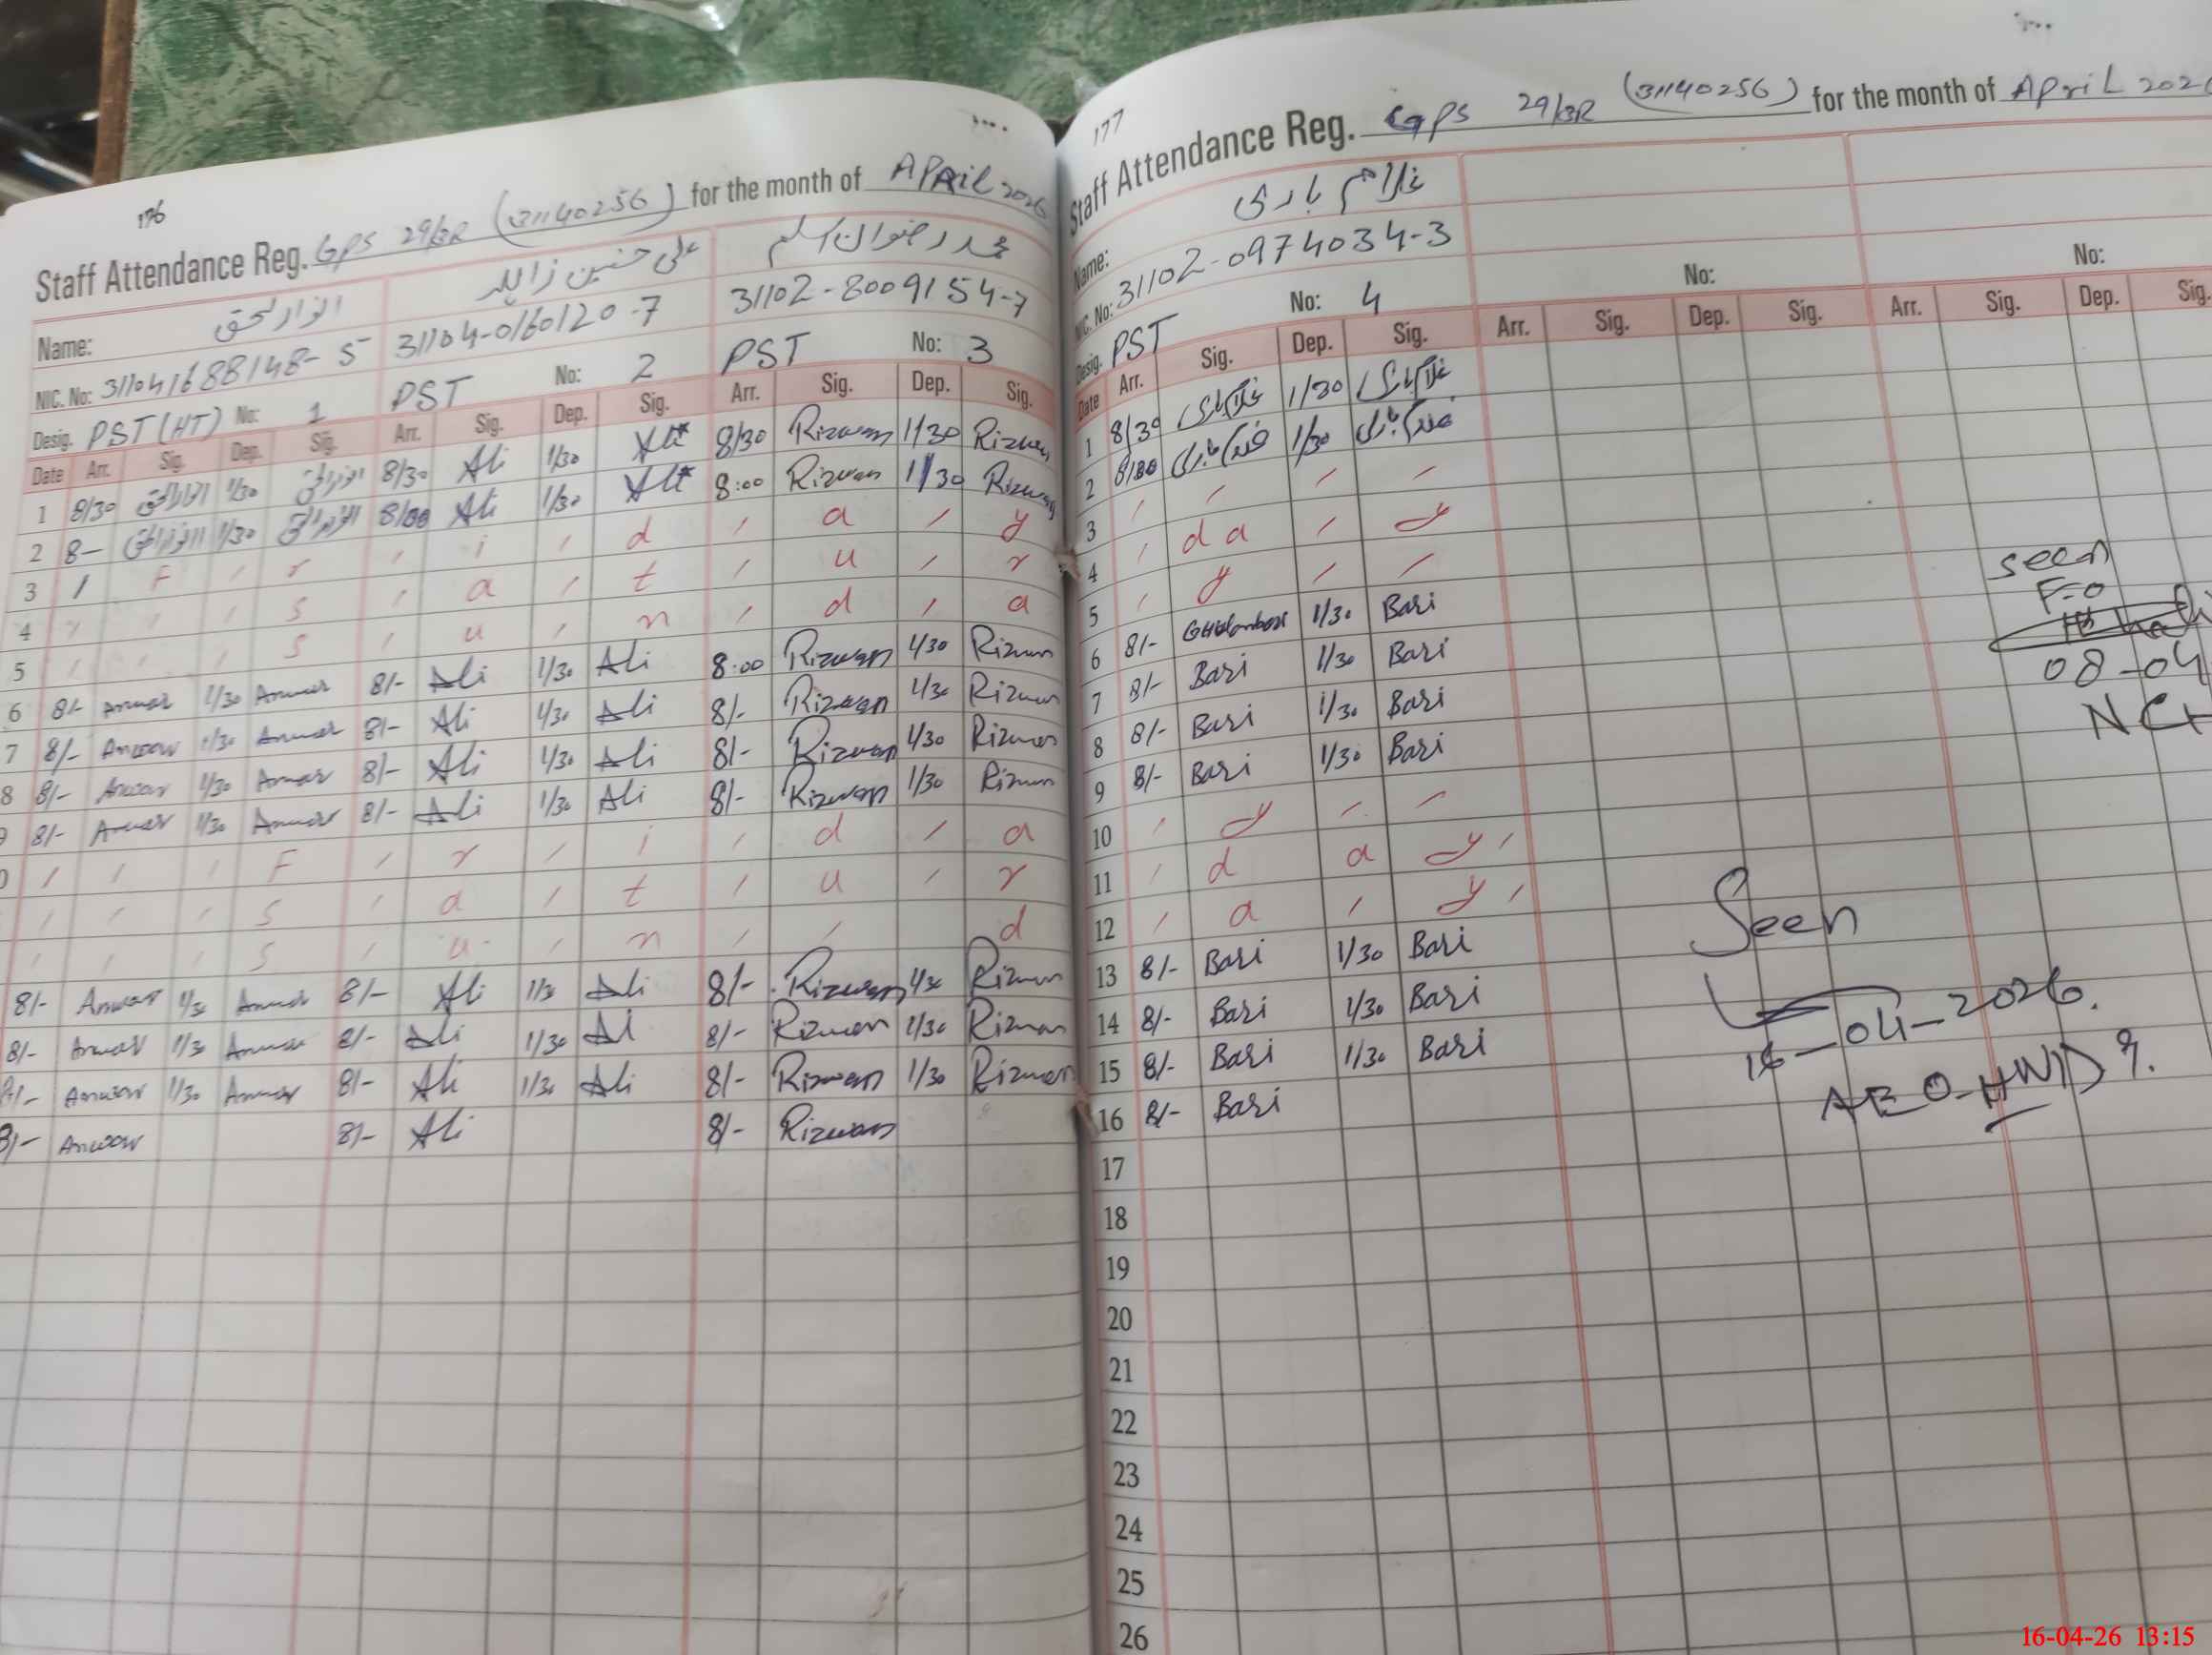 176
Staff Attendance Reg. GPS 29/3R (31140256) for the month of APRiL 2026
Name: انوار الحق علی حسنین زاہد محمد رضوان اسلم
NIC. No: 311041688148-5 31104-0160120-7 31102-8009154-7
Desig. PST (HT) No: 1 PST No: 2 PST No: 3
Date Arr. Sig. Dep. Sig. Arr. Sig. Dep. Sig. Arr. Sig. Dep. Sig.
1 8/30 انوارالحق 1/30 انوارالحق 8/30 Ali 1/30 Ali 8/30 Rizwan 1/30 Rizwan
2 8- انوارالحق 1/30 انوارالحق 8/00 Ali 1/30 Ali 8:00 Rizwan 1/30 Rizwan
3 F r i d a y
4 S a t u r
5 S u n d a
6 8/- Anwar 1/30 Anwar 8/- Ali 1/30 Ali 8:00 Rizwan 1/30 Rizwan
7 8/- Anwar 1/30 Anwar 8/- Ali 1/30 Ali 8/- Rizwan 1/30 Rizwan
8 8/- Anwar 1/30 Anwar 8/- Ali 1/30 Ali 8/- Rizwan 1/30 Rizwan
9 8/- Anwar 1/30 Anwar 8/- Ali 1/30 Ali 8/- Rizwan 1/30 Rizwan
0 F r i d a
S a t u r
S u n d
8/- Anwar 1/30 Anwar 8/- Ali 1/30 Ali 8/- Rizwan 1/30 Rizwan
8/- Anwar 1/30 Anwar 8/- Ali 1/30 Ali 8/- Rizwan 1/30 Rizwan
8/- Anwar 1/30 Anwar 8/- Ali 1/30 Ali 8/- Rizwan 1/30 Rizwan
8/- Anwar 8/- Ali 8/- Rizwan
177
Staff Attendance Reg. GPS 29/3R (31140256) for the month of APriL 202
Name: غلام باری
NIC. No: 31102-0974034-3
Desig. PST No: 4 No: No:
Date Arr. Sig. Dep. Sig. Arr. Sig. Dep. Sig. Arr. Sig. Dep. Sig.
1 8/30 غلام باری 1/30 غلام باری
2 8/00 غلام باری 1/30 غلام باری
3
4 d a y
5 y
6 8/- Ghulam bari 1/30 Bari
7 8/- Bari 1/30 Bari
8 8/- Bari 1/30 Bari
9 8/- Bari 1/30 Bari
10 y
11 d a y
12 a y
13 8/- Bari 1/30 Bari
14 8/- Bari 1/30 Bari
15 8/- Bari 1/30 Bari
16 8/- Bari
17
18
19
20
21
22
23
24
25
26
seen
F-O
08-04
Seen
16-04-2026.
AEO-HND 9.
16-04-26 13:15